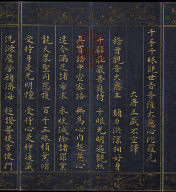 千手千眼觀世音菩薩大悲心陀羅尼
大唐三藏不空譯
稽首觀音大悲主 願力洪深相好身
千臂莊嚴普護持 千眼光明遍觀照
真實語中宣密語 無為心內起悲心
速令滿足諸希求 永使滅除諸罪業
龍天眾聖同慈護 百千三昧頓熏修
受持身是光明幢 受持心是神通藏
洗滌塵勞願濟海 超證菩提方便門